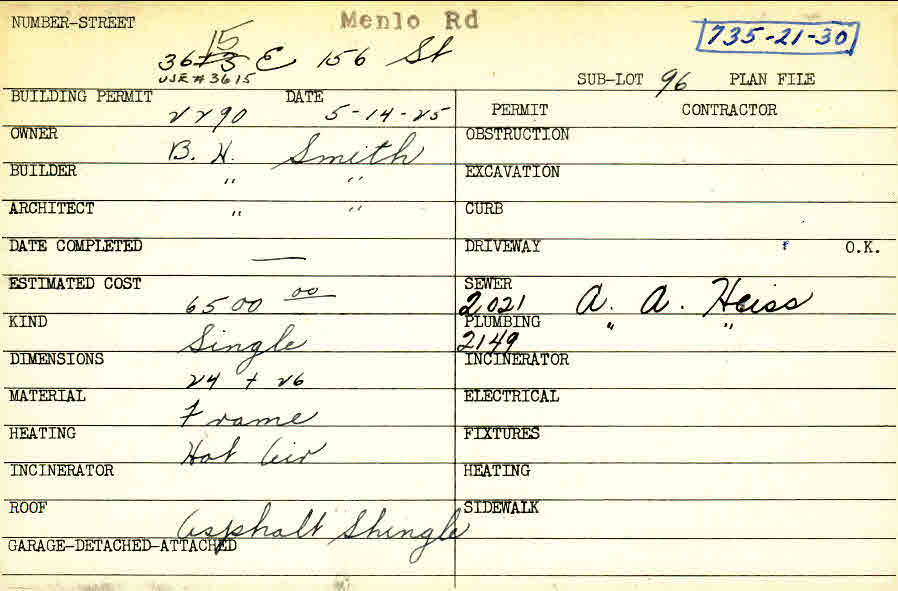 NUMBER-STREET Menlo Rd
15
3613 E 156 St 735-21-30
USE # 3615 SUB-LOT 96 PLAN FILE
BUILDING PERMIT DATE PERMIT CONTRACTOR
2290 5-14-25
OWNER B. H. Smith OBSTRUCTION
BUILDER " " EXCAVATION
ARCHITECT " " CURB
DATE COMPLETED — DRIVEWAY O.K.
ESTIMATED COST 6500 00 SEWER 2021 A. A. Heiss
KIND Single PLUMBING 2149 " "
DIMENSIONS 24 + 26 INCINERATOR
MATERIAL Frame ELECTRICAL
HEATING Hot Air FIXTURES
INCINERATOR HEATING
ROOF Asphalt Shingle SIDEWALK
GARAGE-DETACHED-ATTACHED